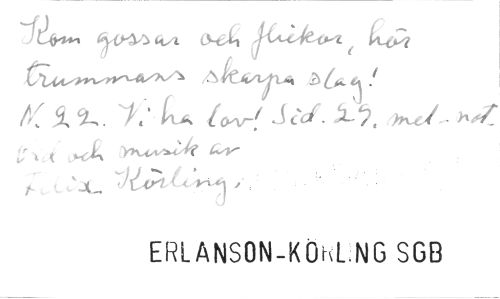 Kom gossar och flickor, hör
trummans skarpa slag!
N. 22. Vi ha lov! Sid. 29. mel-not.
ord och musik av
Felix Körling.
ERLANSON-KÖRLING SGB